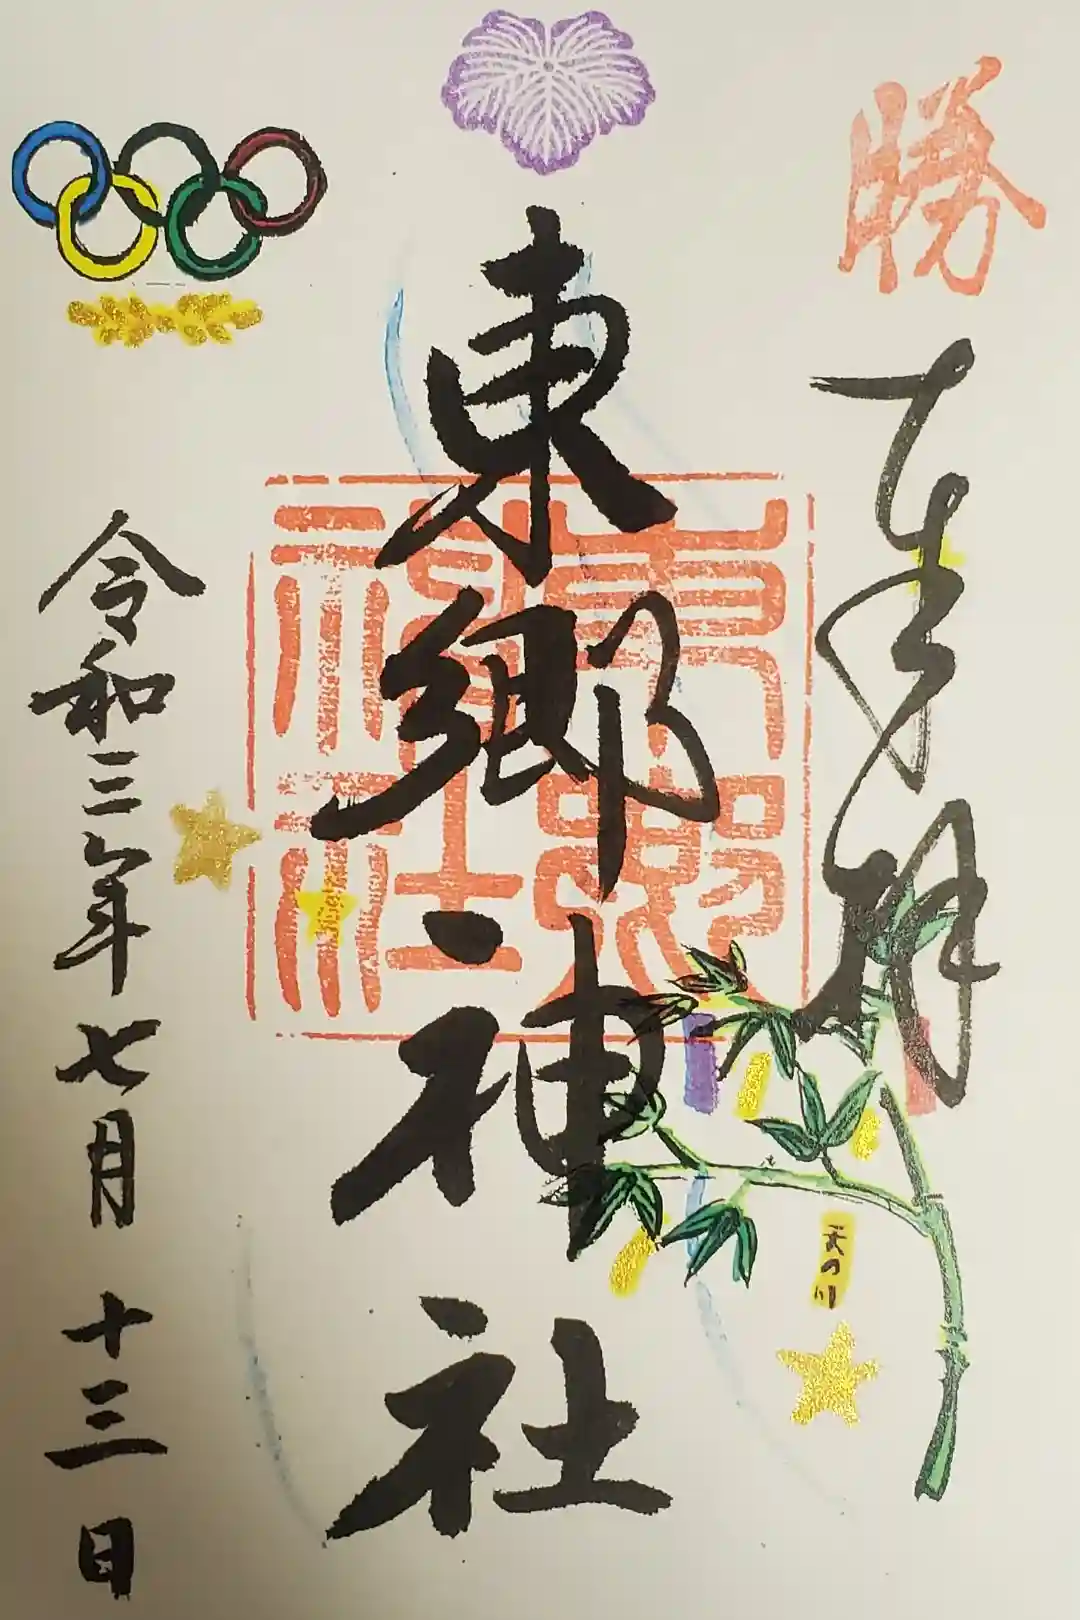 勝
奉拝
東郷神社
東郷神社
天の川
令和三年七月十三日